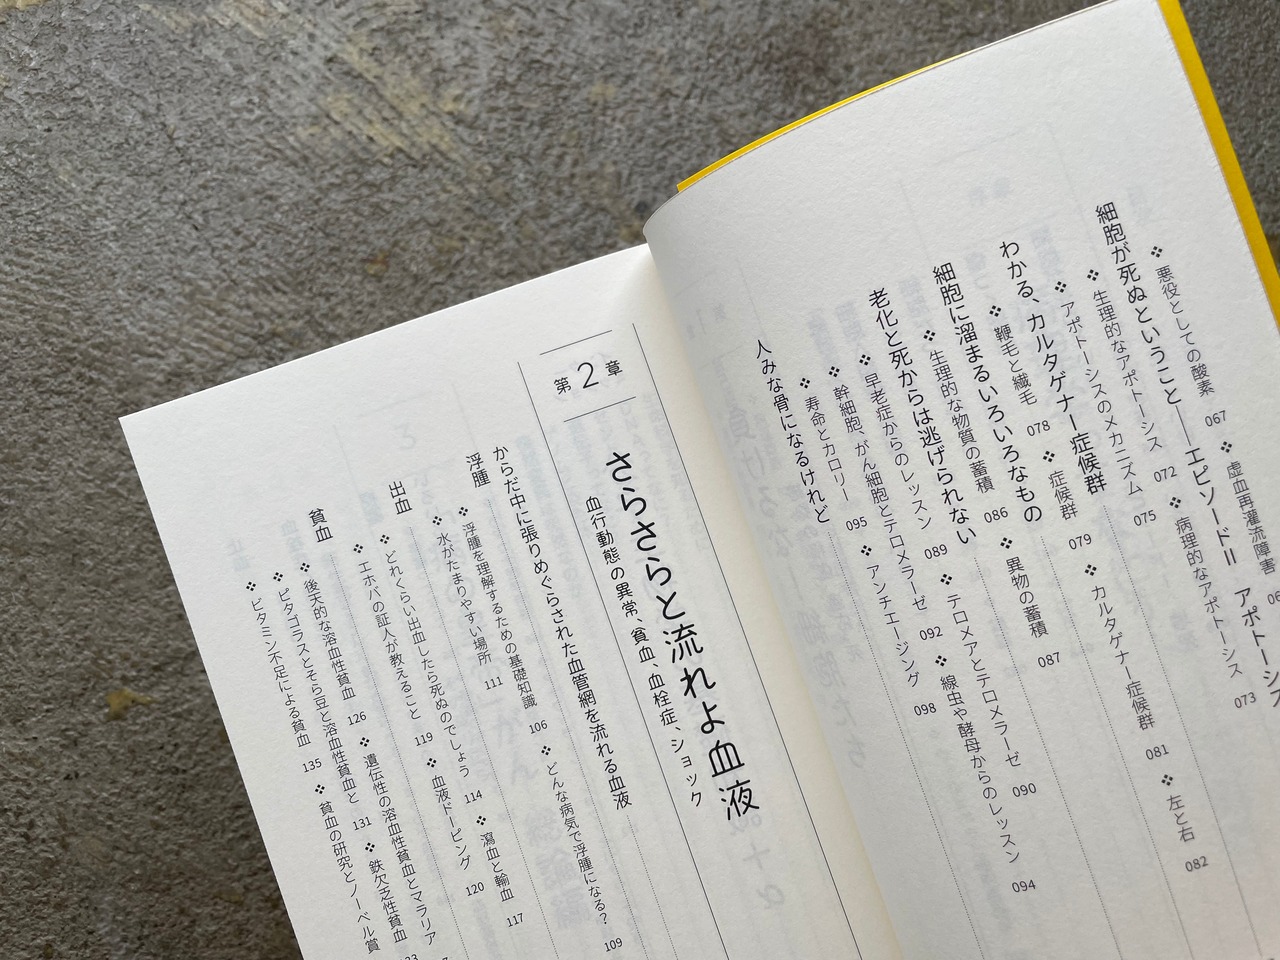 ❖ 悪役としての酸素 067 ❖ 虚血再灌流障害
細胞が死ぬということ――エピソードⅡ アポトーシス
❖ 生理的なアポトーシス 072 ❖ 病理的なアポトーシス 073
❖ アポトーシスのメカニズム 075
わかる、カルタゲナー症候群
❖ 鞭毛と繊毛 078 ❖ 症候群 079 ❖ カルタゲナー症候群 081 ❖ 左と右 082
細胞に溜まるいろいろなもの
❖ 生理的な物質の蓄積 086 ❖ 異物の蓄積 087
老化と死からは逃げられない
❖ 早老症からのレッスン 089 ❖ テロメアとテロメラーゼ 090
❖ 幹細胞、がん細胞とテロメラーゼ 092 ❖ 線虫や酵母からのレッスン 094
❖ 寿命とカロリー 095 ❖ アンチエージング 098
人みな骨になるけれど
第2章
さらさらと流れよ血液
血行動態の異常、貧血、血栓症、ショック
からだ中に張りめぐらされた血管網を流れる血液
浮腫
❖ 浮腫を理解するための基礎知識 106 ❖ どんな病気で浮腫になる? 109
❖ 水がたまりやすい場所 111
出血
❖ どれくらい出血したら死ぬのでしょう 114 ❖ 瀉血と輸血 117
❖ エホバの証人が教えること 119 ❖ 血液ドーピング 120
貧血
❖ 後天的な溶血性貧血 126 ❖ 遺伝性の溶血性貧血とマラリア
❖ ピタゴラスとそら豆と溶血性貧血と 131 ❖ 鉄欠乏性貧血
❖ ビタミン不足による貧血 135 ❖ 貧血の研究とノーベル賞